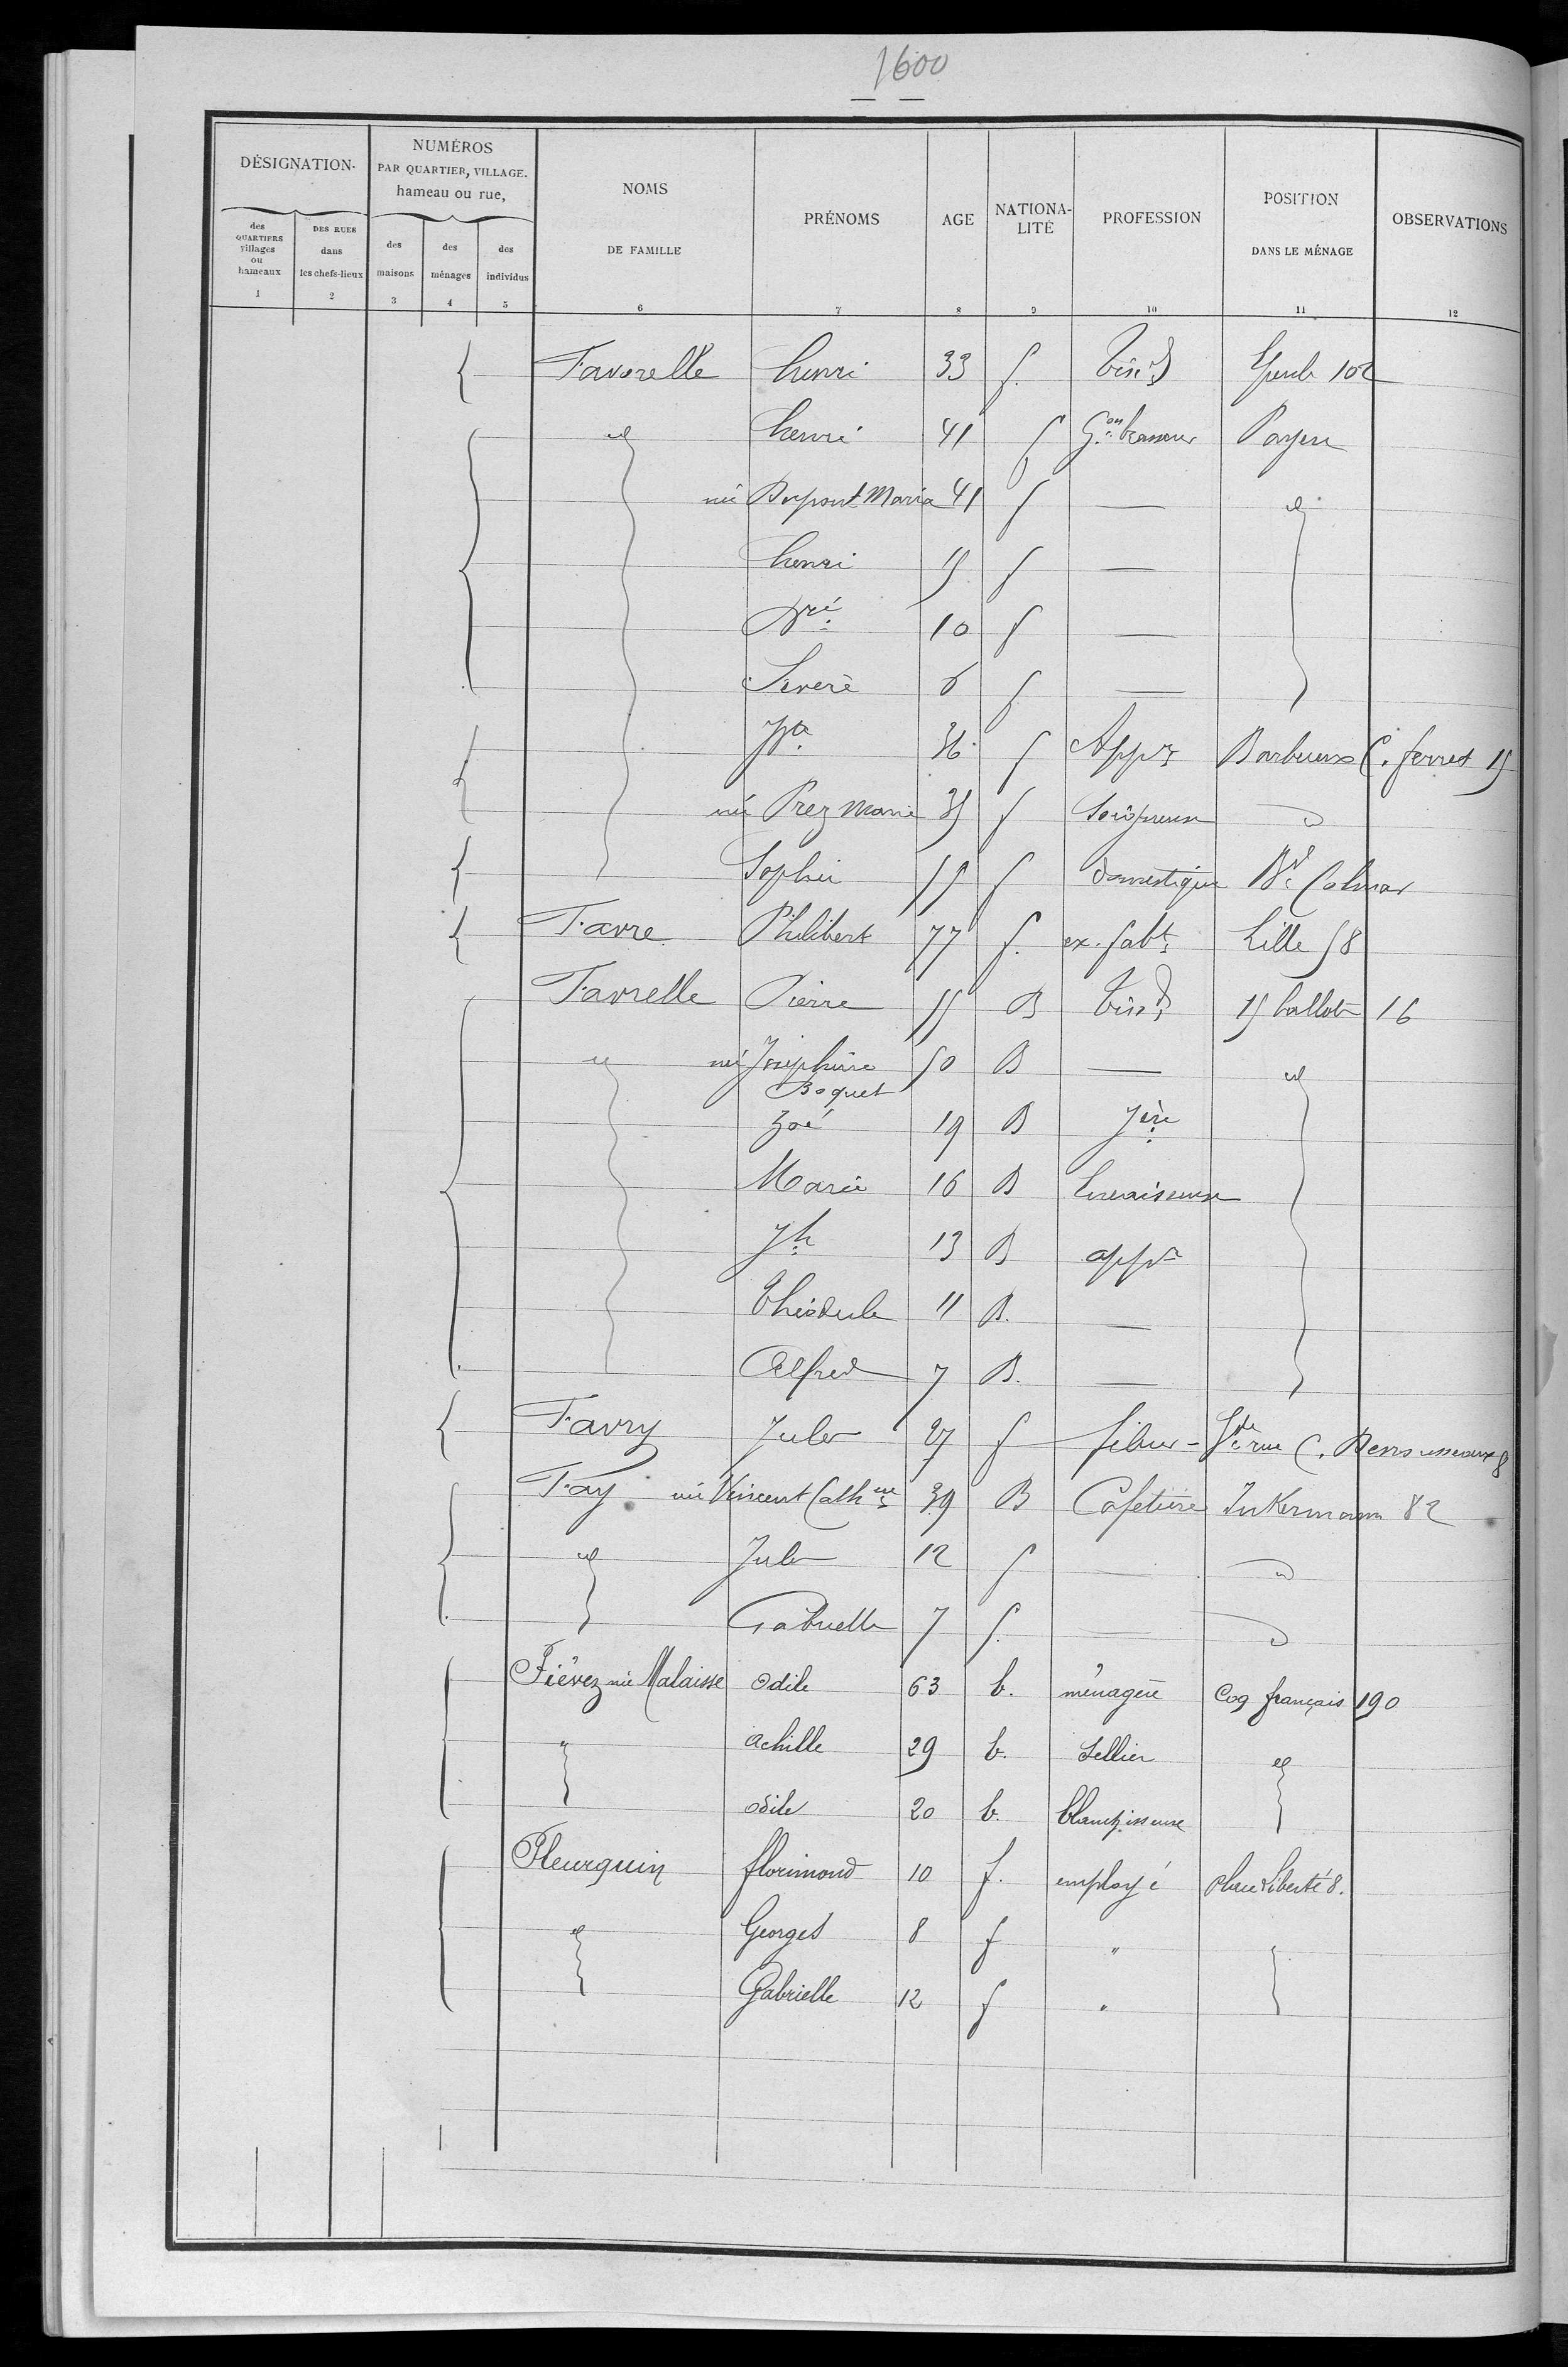 1600
DÉSIGNATION
NUMÉROS
PAR QUARTIER, VILLAGE.
hameau ou rue,
NOMS
DE FAMILLE
PRÉNOMS
AGE
NATIONA-
LITÉ
PROFESSION
POSITION
DANS LE MÉNAGE
OBSERVATIONS
des
QUARTIERS
villages
ou
hameaux
DES RUES
dans
les chefs-lieux
des
maisons
des
ménages
des
individus
1 2 3 4 5 6 7 8 9 10 11 12
Favorelle henri 33 f. 102
id henri 41 f Gon brasseur Payen
née Dupont Maria 41 f — id
henri 15 f —
10 f —
Severe 6 f —
36 f App Barbieux C. ferret 15
née Prez Marie 35 f Soigneuse
Sophie 55 f domestique Bd Colmar
Favre Philibert 77 f. ex. fabt Lille 58
Favrelle Pierre 55 B tisd 15 ballot 16
id née Joséphine 50 B — id
Boquet
Zoé 19 B Jère
Marie 16 B
Jh 13 B appr
Théodule 11 B. —
Alfred 7 B. —
Favry Jules 27 f fileur - C. 8
Fay née Vincent Cathne 39 B Cafetière Inkermann 82
id Jules 12 f —
Gabrielle 7 f. —
Fiévez née Malaisse Odile 63 b. ménagère Coq français 190
" achille 29 b. Sellier id
odile 20 b. blanchisseuse
Fleurquin florimond 10 f. employé place Liberté 8.
id Georges 8 f "
Gabrielle 12 f "